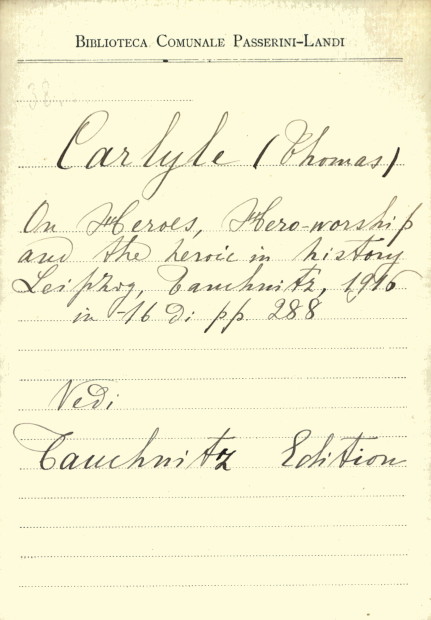 BIBLIOTECA COMUNALE PASSERINI-LANDI
38
Carlyle (Thomas)
On Heroes, Hero-worship
and the heroic in history
Leipzig, Tauchnitz, 1916
in -16 di pp 288
Vedi
Tauchnitz Edition